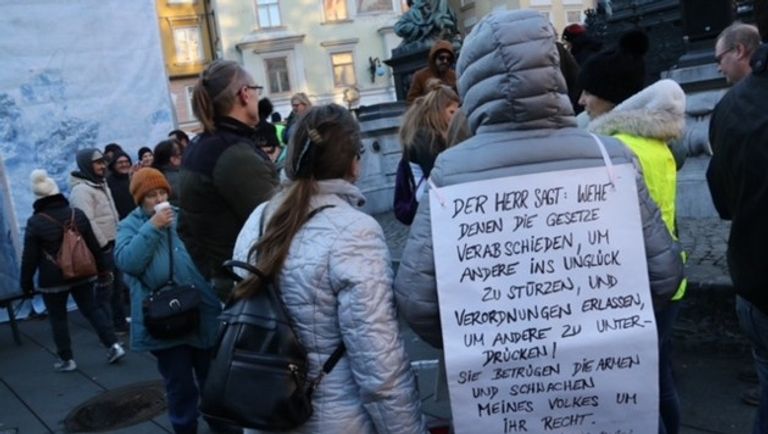 DER HERR SAGT: WEHE
DENEN DIE GESETZE
VERABSCHIEDEN, UM
ANDERE INS UNGLÜCK
ZU STÜRZEN, UND
VERORDNUNGEN ERLASSEN,
UM ANDERE ZU UNTER-
DRÜCKEN!
SIE BETRÜGEN DIE ARMEN
UND SCHWACHEN
MEINES VOLKES UM
IHR RECHT.